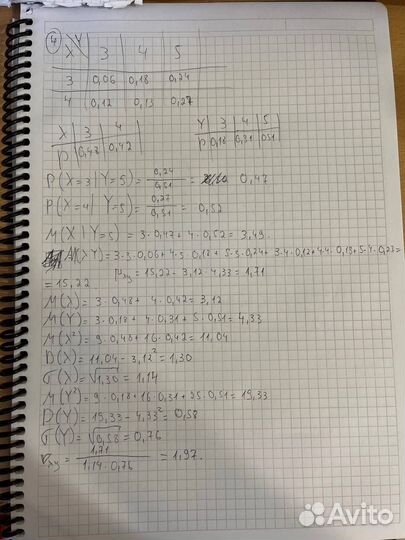 4 X\Y | 3 | 4 | 5
3 | 0,06 | 0,18 | 0,24
4 | 0,12 | 0,13 | 0,27
X | 3 | 4 Y | 3 | 4 | 5
p | 0,48 | 0,42 p | 0,18 | 0,31 | 0,51
P(X=3|Y=5) = 0,24/0,51 = 0,47
P(X=4|Y=5) = 0,27/0,51 = 0,52
M(X|Y=5) = 3·0,47 + 4·0,52 = 3,49
M(XY) = 3·3·0,06 + 4·3·0,18 + 5·3·0,24 + 3·4·0,12 + 4·4·0,13 + 5·4·0,27 =
= 15,22 μxy = 15,22 - 3,12·4,33 = 1,71
M(X) = 3·0,48 + 4·0,42 = 3,12
M(Y) = 3·0,18 + 4·0,31 + 5·0,51 = 4,33
M(X²) = 9·0,48 + 16·0,42 = 11,04
D(X) = 11,04 - 3,12² = 1,30
σ(X) = √1,30 = 1,14
M(Y²) = 9·0,18 + 16·0,31 + 25·0,51 = 19,33
D(Y) = 19,33 - 4,33² = 0,58
σ(Y) = √0,58 = 0,76
rxy = 1,71/1,14·0,76 = 1,97.
Avito